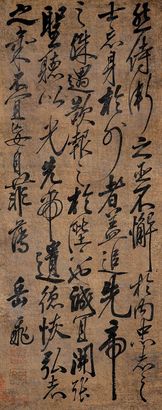 然侍衛之臣不懈於內忠志之
士忘身於外者蓋追先帝
之殊遇欲報之於陛下也誠宜開張
聖聽以光先帝遺德恢弘志
之氣不宜妄自菲薄 岳飛